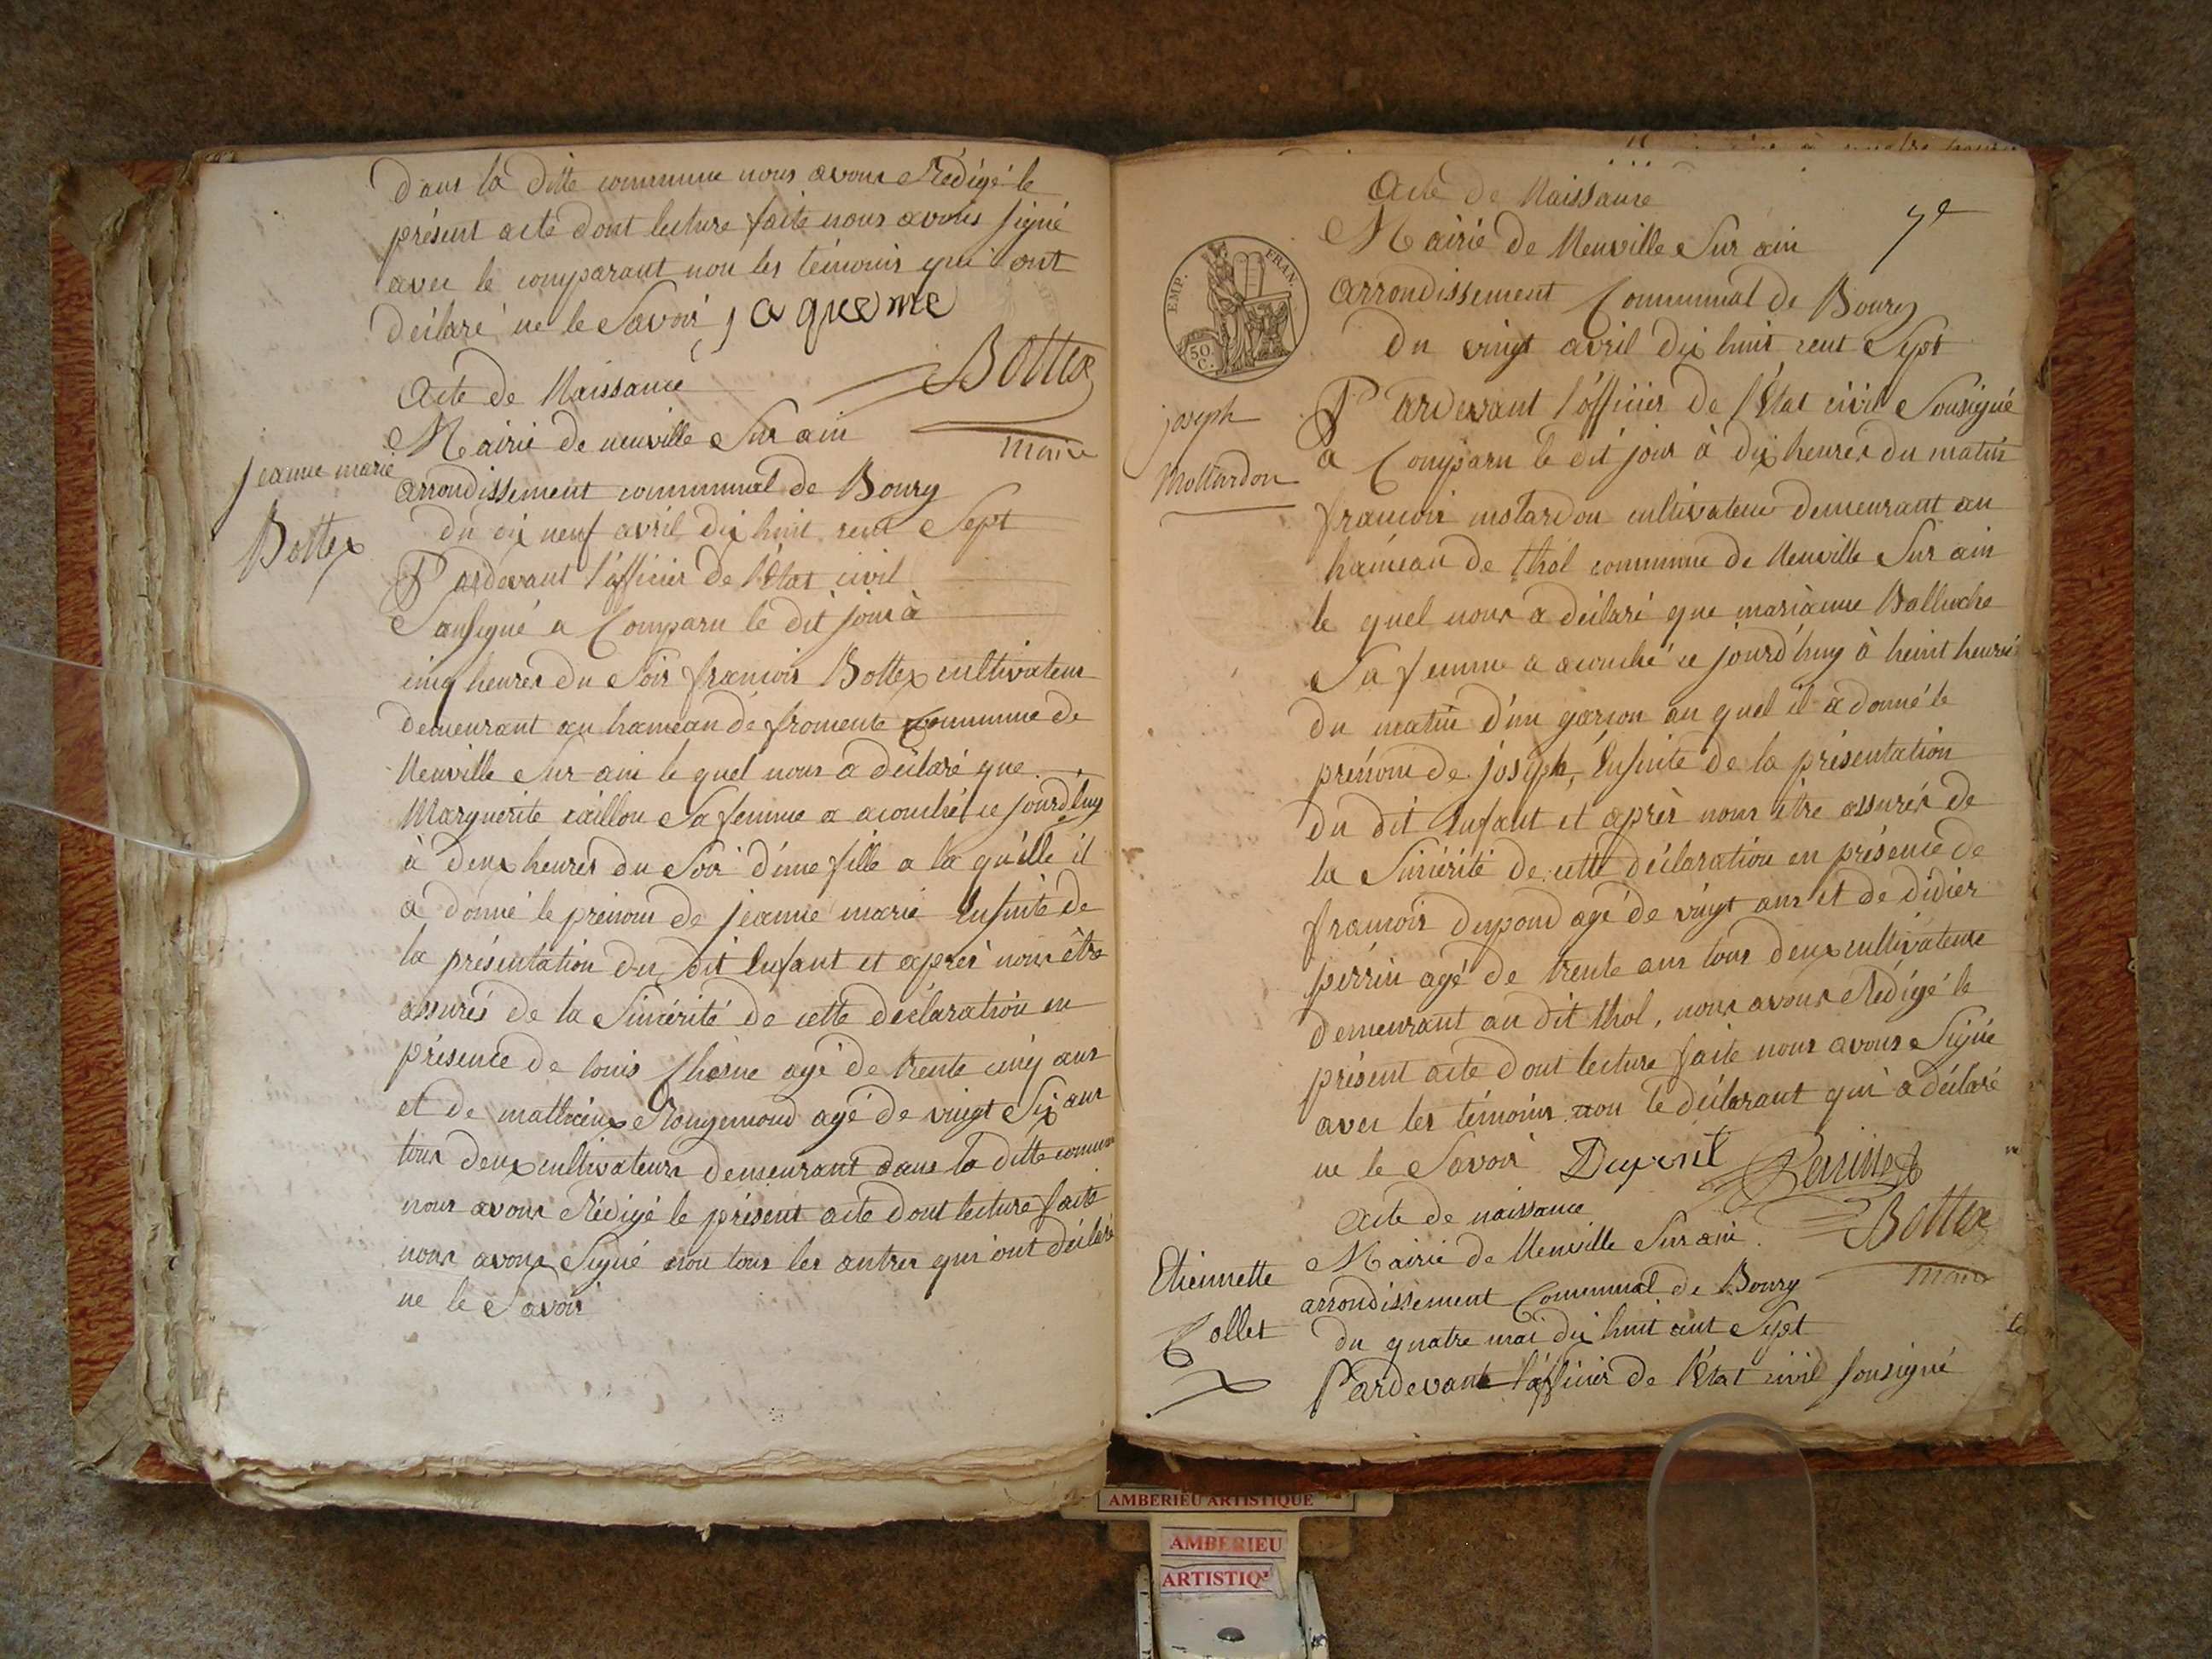 dans la ditte commune nous avons Rédigé le
présent acte dont lecture faite nous avons signé
avec le comparant non les témoins qui ont
déclaré ne le Savoir jaqueme
Bottex
maire
Acte de Naissance
Mairie de neuville Sur ain
jeanne marie
Bottex
arrondissement communal de Bourg
du dix neuf avril dix huit cent Sept
Pardevant l'officier de l'Etat civil
Sousigné a Comparu le dit jour à
cinq heures du Soir françois Bottex cultivateur
demeurant au hameau de fromente Commune de
Neuville Sur ain le quel nous a déclaré que
Marguerite caillon Sa femme a acouché ce jourd'huy
à deux heures du Soir d'une fille a la quelle il
a donné le prénom de jeanne marie Ensuite de
la présentation du dit Enfant et après nous être
assurés de la Sincérité de cette déclaration en
présence de louis Chêne agé de trente cinq ans
et de mathieux Rougemond agé de vingt Six ans
tous deux cultivateurs demeurant dans la ditte commune
nous avons Rédigé le présent acte dont lecture faite
nous avons Signé non tous les autres qui ont déclaré
ne le Savoir
Acte de Naissance
7e
Mairie de Neuville Sur ain
EMP. FRAN.
50 C.
arrondissement Communal de Bourg
du vingt avril dix huit cent Sept
joseph
Mottardon
Pardevant l'officier de l'Etat civil Sousigné
a Comparu le dit jour à dix heures du matin
françois motardon cultivateur demeurant au
hameau de thol commune de Neuville Sur ain
le quel nous a déclaré que marianne Balluche
Sa femme a acouché ce jourd'huy à heuit heures
du matin d'un garçon au quel il a donné le
prénom de joseph, Ensuite de la présentation
du dit Enfant et après nous être assurés de
la Sincérité de cette déclaration en présence de
françois dupond agé de vingt ans et de didier
perrin agé de trente ans tous deux cultivateurs
demeurant au dit thol, nous avons Rédigé le
présent acte dont lecture faite nous avons Signé
avec les témoins non le déclarant qui a déclaré
ne le Savoir Dupont
Bottex
maire
Acte de naissance
Mairie de Neuville Sur ain
Etiennette
Collet
arrondissement Communal de Bourg
du quatre mai dix huit cent Sept
Pardevant l'officier de l'Etat civil sousigné
AMBERIEU ARTISTIQUE
AMBERIEU
ARTISTIQ